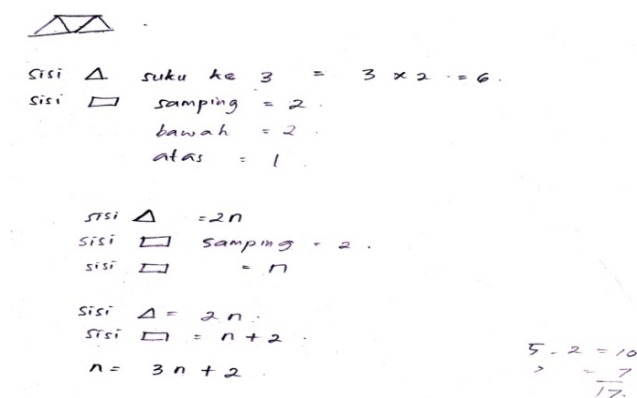 sisi △ suku ke 3 = 3 x 2 = 6.
sisi ▭ samping = 2.
bawah = 2.
atas = 1
sisi △ = 2n
sisi ▭ samping = 2.
sisi ▭ = n
sisi △ = 2n.
sisi ▭ = n + 2.
n = 3n + 2.
5 . 2 = 10
= 7
17.